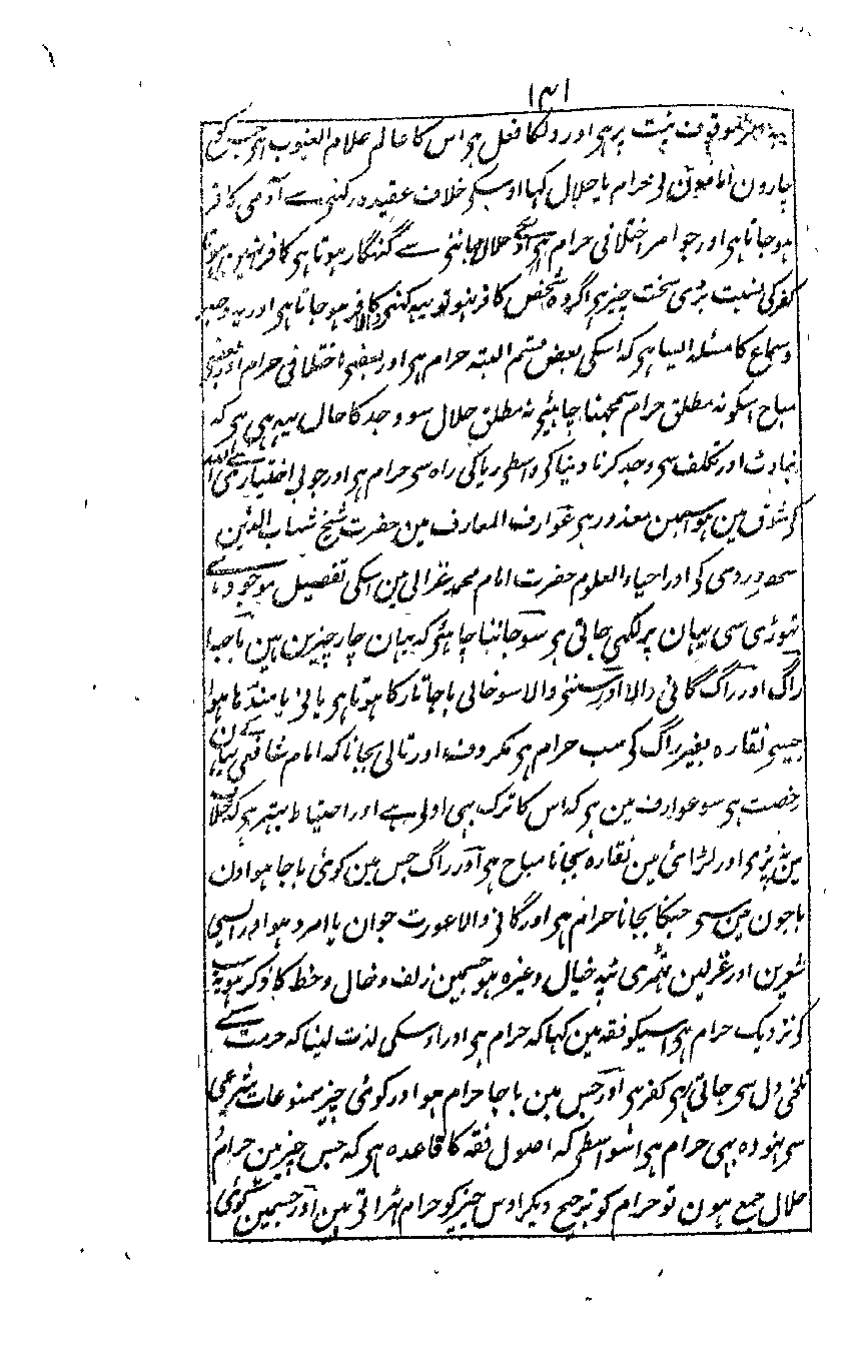 ۱۳۱
موقوف نیت پر ہی اور دلکا فعل ہی اس کا عالم علام الغیوب ہی جسکو
چارون امامون نی حرام یا حلال کہا اوسکی خلاف عقیدہ رکہنی سے آدمی کافر
ہو جاتا ہی اور جو امر اختلافی حرام ہی اوسکی حلال جاننی سے گنہگار ہوتا ہی کافر نہین ہوتا
کفر کی نسبت بڑی سخت چیز ہی اگر وہ شخص کافر نہو تو یہہ کہنی والا کافر ہو جاتا ہی اور یہہ وجد
و سماع کا مسئلہ ایسا ہی کہ اسکی بعض قسم البتہ حرام ہی اور بعضی اختلافی حرام اور بعضی
مباح اسکو نہ مطلق حرام سمجہنا چاہئی نہ مطلق حلال سو وجد کا حال یہہ ہی ہی کہ
بناوٹ اور تکلف سی وجد کرنا دنیا کی واسطی ریا کی راہ سی حرام ہی اور جو بی اختیاری سی اللہ
کی شوق مین ہو اسمین معذور ہی عوارف المعارف مین حضرت شیخ شہاب الدین
سہروردی کی اور احیاء العلوم حضرت امام محمد غزالی مین اسکی تفصیل موجود ہے
تہوڑی سی یہان پر لکہی جاتی ہی سو جاننا چاہئی کہ یہان چار چیزین ہین باجا
راگ اور راگ گانی والا اور سننی والا سو خالی باجا تار کا ہوتا ہی یا نی یا منڈہا ہوا
جیسی نقارہ بغیر راگ کی سب حرام ہی مگر دف اور تالی بجانا کہ امام شافعی کے یہان
رخصت ہی سو عوارف مین ہی کہ اس کا ترک ہی اولی ہے اور احتیاط بہتر ہی کہ خلاف
مین نہ پڑی اور لڑائی مین نقارہ بجانا مباح ہی اور راگ جس مین کوئی باجا ہو اون
باجون مین سی جنکا بجانا حرام ہی اور گانی والا عورت جوان یا امرد ہو اور ایسی
شعرین اور غزلین ٹہمری ٹپہ خیال وغیرہ ہو جسمین زلف و خال و خط کا ذکر ہو یہہ سب
کی نزدیک حرام ہی اسیکو فقہ مین کہا کہ حرام ہی اور اوسکی لذت لینا کہ حرمت سے
تلخی دل سی جاتی رہی کفر ہی اور جس مین باجا حرام ہو اور کوئی چیز ممنوعات شرعی
سی نہو وہ بہی حرام ہی اسواسطی کہ اصول فقہ کا قاعدہ ہی کہ جس چیز مین حرام
حلال جمع ہون تو حرام کو ترجیح دیکر اوس چیز کو حرام ٹہراتی ہین اور جسمین کوئی